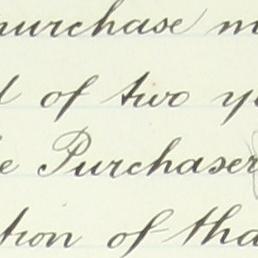 purchase m
d of two y
e Purchaser
tion of tha